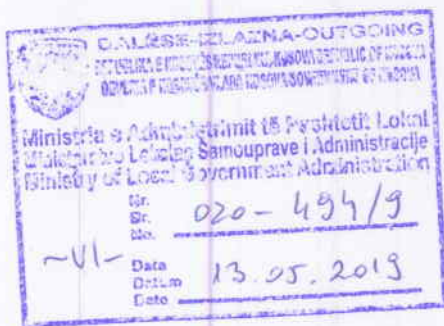 DALËSE-IZLAZNA-OUTGOING
REPUBLIKA E KOSOVËS/REPUBLIKA KOSOVA/REPUBLIC OF KOSOVA
Ministria e Administrimit të Pushtetit Lokal
Lokalne Samouprave i Administracije
Ministry of Local Government Administration
Nr.
Br. 020-494/9
No.
~VI~ Data
Datum 13.05.2019
Date